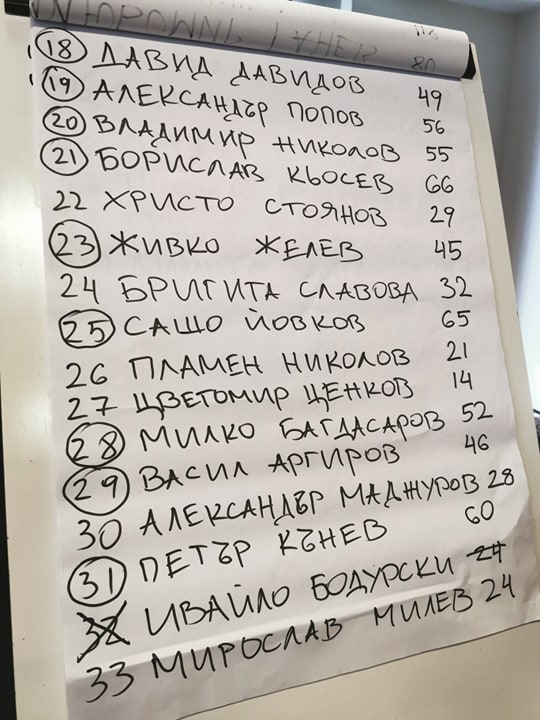 80
18 ДАВИД ДАВИДОВ 49
19 АЛЕКСАНДЪР ПОПОВ 56
20 ВЛАДИМИР НИКОЛОВ 55
21 БОРИСЛАВ КЬОСЕВ 66
22 ХРИСТО СТОЯНОВ 29
23 ЖИВКО ЖЕЛЕВ 45
24 БРИГИТА СЛАВОВА 32
25 САШО ЙОВКОВ 65
26 ПЛАМЕН НИКОЛОВ 21
27 ЦВЕТОМИР ЦЕНКОВ 14
28 МИЛКО БАГДАСАРОВ 52
29 ВАСИЛ АРГИРОВ 46
30 АЛЕКСАНДЪР МАДЖУРОВ 28
31 ПЕТЪР КЪНЕВ 60
32 ИВАЙЛО БОДУРСКИ 24
33 МИРОСЛАВ МИЛЕВ 24